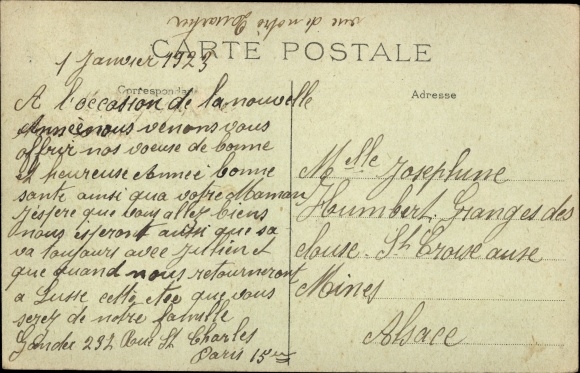 vue de notre Quartier
CARTE POSTALE
1 Janvier 1923
Correspondance
A l'occasion de la nouvelle
Année nous venons vous
offrir nos voeuse de bonne
et heureuse Année bonne
sante ainsi qua votre Maman
Jespere que vous allez biens
nous esperont aussi que sa
va toujours avec Jullien et
que quand nous retourneront
a Lusse cette Etee que vous
serez de notre famille
232 Rue St Charles
Paris 15me
Adresse
Melle Josephine
Humbert Granges des
clouse St Croise ause
Mines
Alsace